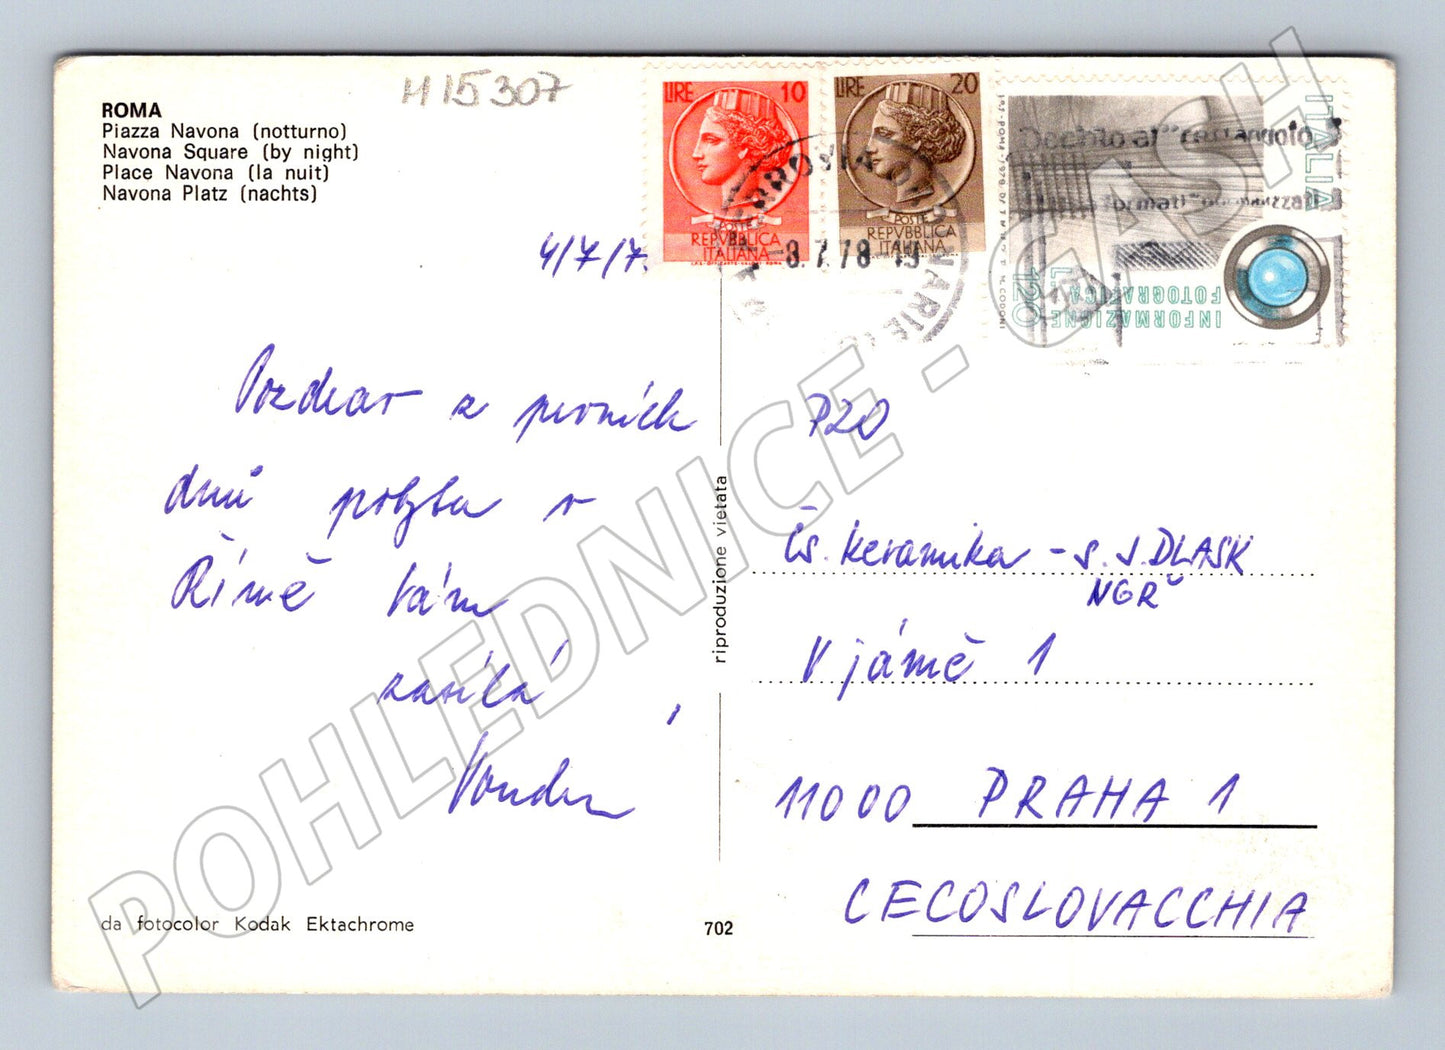 H15307
ROMA
Piazza Navona (notturno)
Navona Square (by night)
Place Navona (la nuit)
Navona Platz (nachts)
LIRE 10
REPVBBLICA
ITALIANA
LIRE 20
POSTE
REPVBBLICA
ITALIANA
8.7.78
ITALIA
INFORMAZIONE
FOTOGRAFICA
L. 120
4/7/7
Pozdrav z prvních
dnů pobytu v
Římě Vám
zasílá
riproduzione vietata
PZO
Čs. keramika - s. J. DLASK
NGŘ
V jámě 1
11000 PRAHA 1
CECOSLOVACCHIA
da fotocolor Kodak Ektachrome
702
POHLEDNICE - CASH